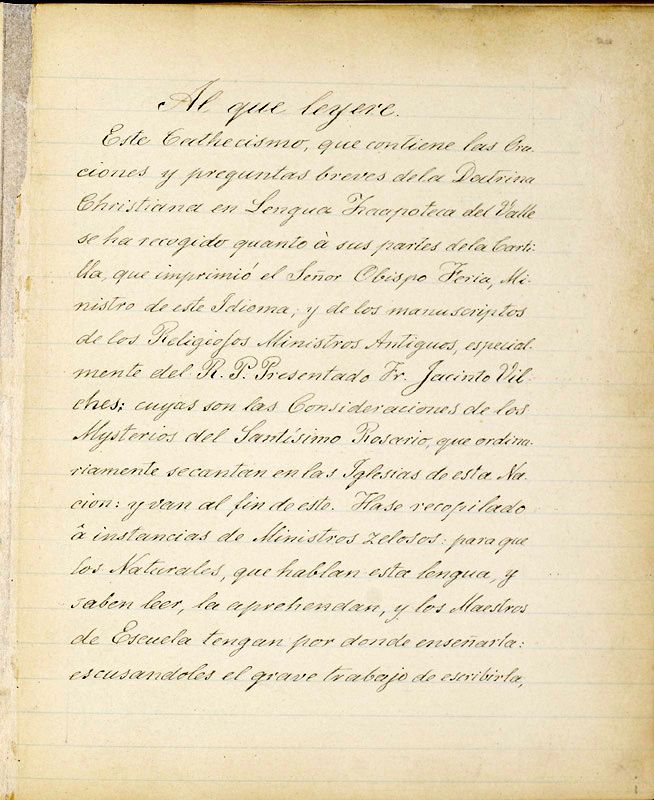 Al que leyere.
Este Cathecismo, que contiene las Ora-
ciones y preguntas breves dela Doctrina
Christiana en Lengua Zaapoteca del Valle
se ha recogido quanto à sus partes dela Carti-
lla, que imprimió el Señor Obispo Feria, Mi-
nistro de este Idioma; y de los manuscriptos
de los Religiosos Ministros Antiguos, especial-
mente del R. P. Presentado Fr. Jacinto Vil-
ches; cuyas son las Consideraciones de los
Mysterios del Santísimo Rosario, que ordina-
riamente secantan en las Iglesias de esta Na-
cion: y van al fin de este. Hase recopilado
â instancias de Ministros zelosos: para que
los Naturales, que hablan esta lengua, y
saben leer, la aprehendan, y los Maestros
de Escuela tengan por donde enseñarla:
escusandoles el grave trabajo de escribirla,